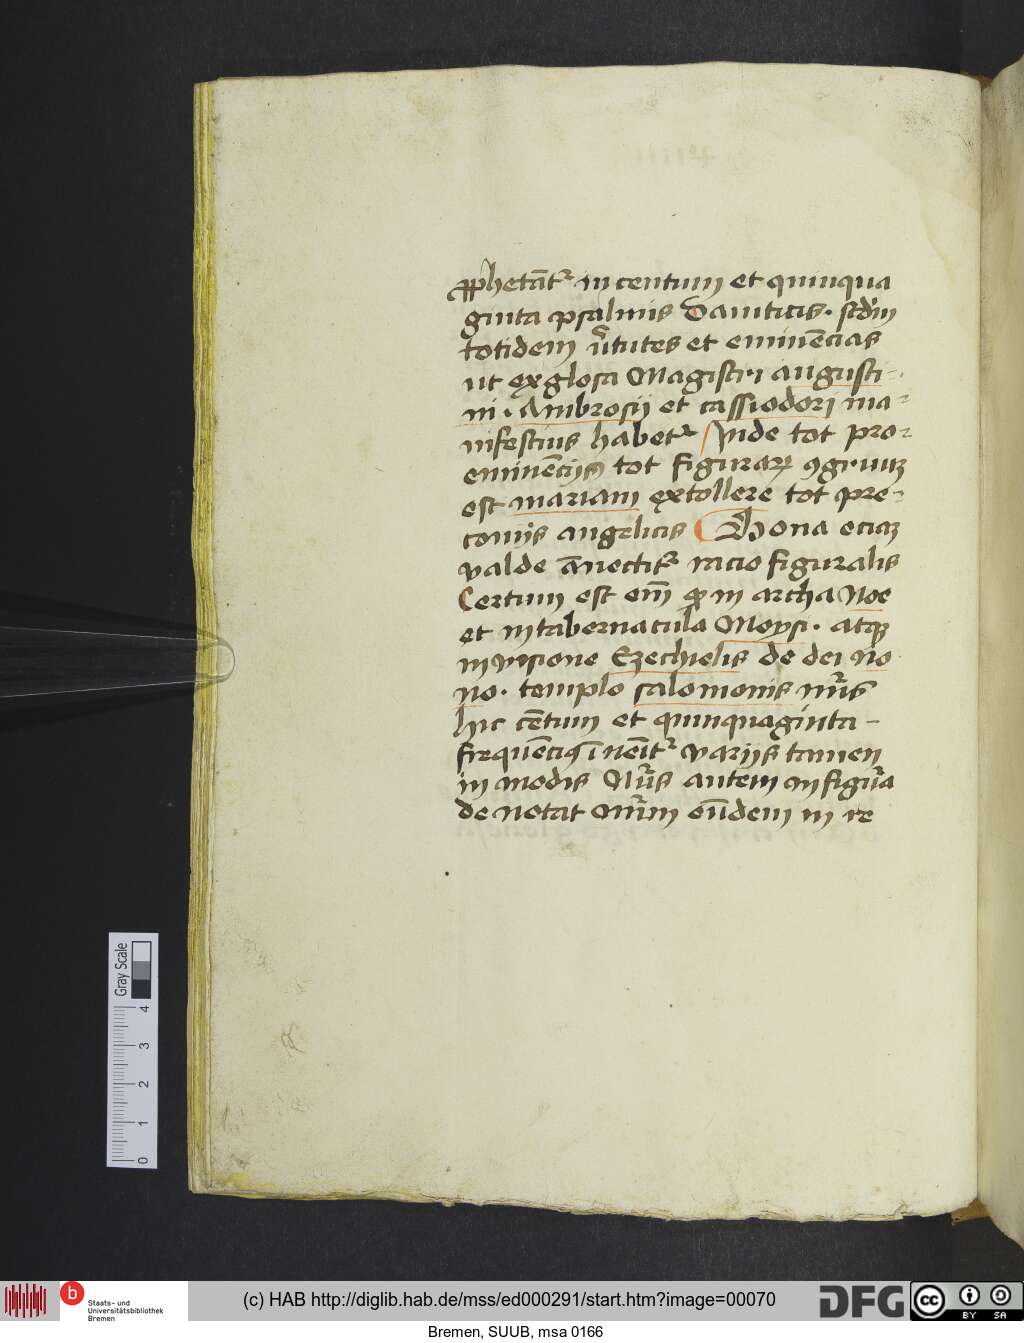 ꝓphetāt᷑ in centum et quinqua
ginta psalmis Dauiticis. scd'm
totidem v̄tutes et eminēcias
ut ex glosa Magistri augusti-
ni. Ambrosij et cassiodori ma-
nifestius habet᷑ Vnde tot pro-
eminēcijs tot figuraꝝ ꝯgruuꝫ
est mariam extollere tot pre-
conijs angelicis Bona eciaꝫ
valde ānectit᷑ racio figuralis
Certum est em̄ ꝙ in archa Noe
et in tabernacula Moysi. atqꝫ
in visione Ezechielis de dei no
no. templo salomonis nūs
hic cētum et quinquaginta -
frequēciꝰ īueīt᷑ varijs tamen
in modis Nūs autem in figura
de notat eūdem in re
Gray Scale
4
3
2
1
0
b
Staats- und
Universitätsbibliothek
Bremen
(c) HAB http://diglib.hab.de/mss/ed000291/start.htm?image=00070
DFG
cc
BY SA
Bremen, SUUB, msa 0166